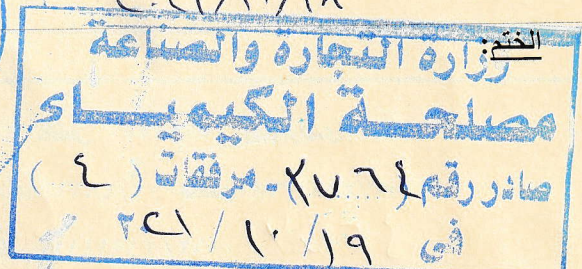 الختم:
وزارة التجارة والصناعة
مصلحة الكيمياء
صادر رقم (٢٧٦٤) مرفقات (٤)
فى ١٩ / ١٠ / ٢٠٢١